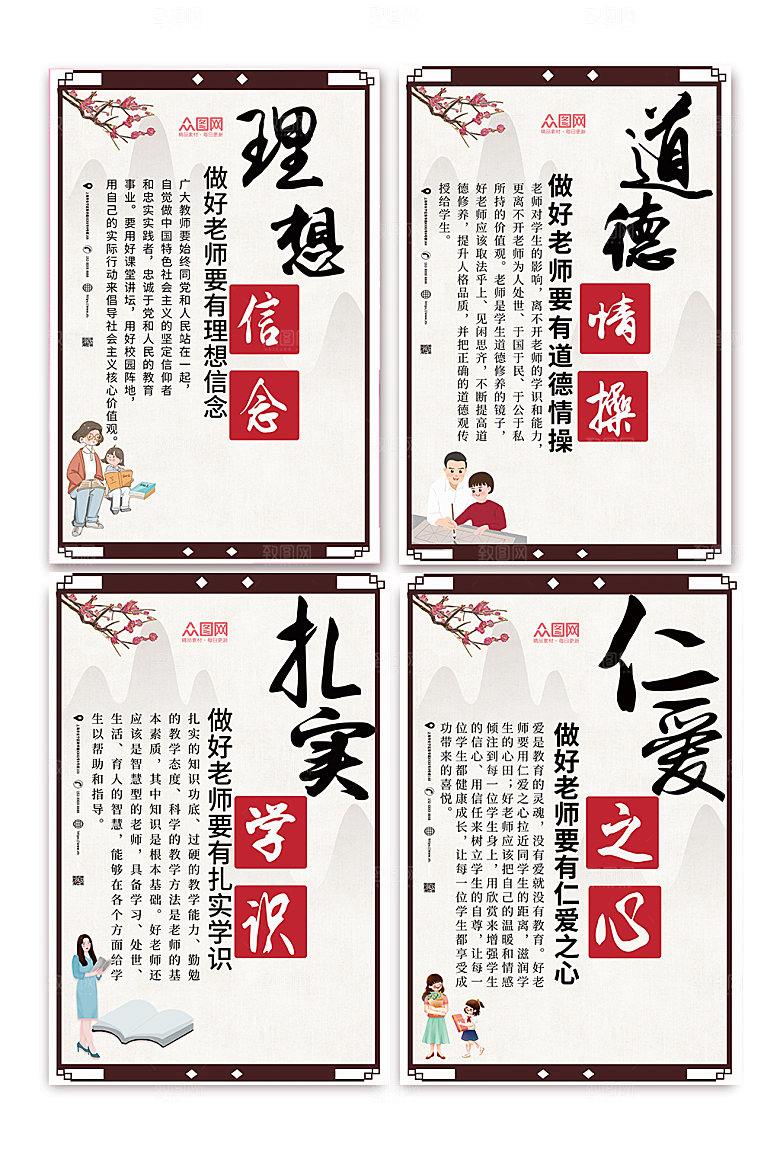 理想
信念
做好老师要有理想信念
广大教师要始终同党和人民站在一起，
自觉做中国特色社会主义的坚定信仰者
和忠实实践者，忠诚于党和人民的教育
事业。要用好课堂讲坛，用好校园阵地，
用自己的实际行动来倡导社会主义核心价值观。
众图网
精品素材·每日更新
道德
情操
做好老师要有道德情操
老师对学生的影响，离不开老师的学识和能力，
更离不开老师为人处世、于国于民、于公于私
所持的价值观。老师是学生道德修养的镜子，
好老师应该取法乎上、见闲思齐，不断提高道
德修养，提升人格品质，并把正确的道德观传
授给学生。
众图网
精品素材·每日更新
扎实
学识
做好老师要有扎实学识
扎实的知识功底、过硬的教学能力、勤勉
的教学态度、科学的教学方法是老师的基
本素质，其中知识是根本基础。好老师还
应该是智慧型的老师，具备学习、处世、
生活、育人的智慧，能够在各个方面给学
生以帮助和指导。
众图网
精品素材·每日更新
仁爱
之心
做好老师要有仁爱之心
爱是教育的灵魂，没有爱就没有教育。好老
师要用仁爱之心拉近同学生的距离，滋润学
生的心田；好老师应该把自己的温暖和情感
倾注到每一位学生身上，用欣赏来增强学生
的信心、用信任来树立学生的自尊，让每一
位学生都健康成长，让每一位学生都享受成
功带来的喜悦。
众图网
精品素材·每日更新
致图网